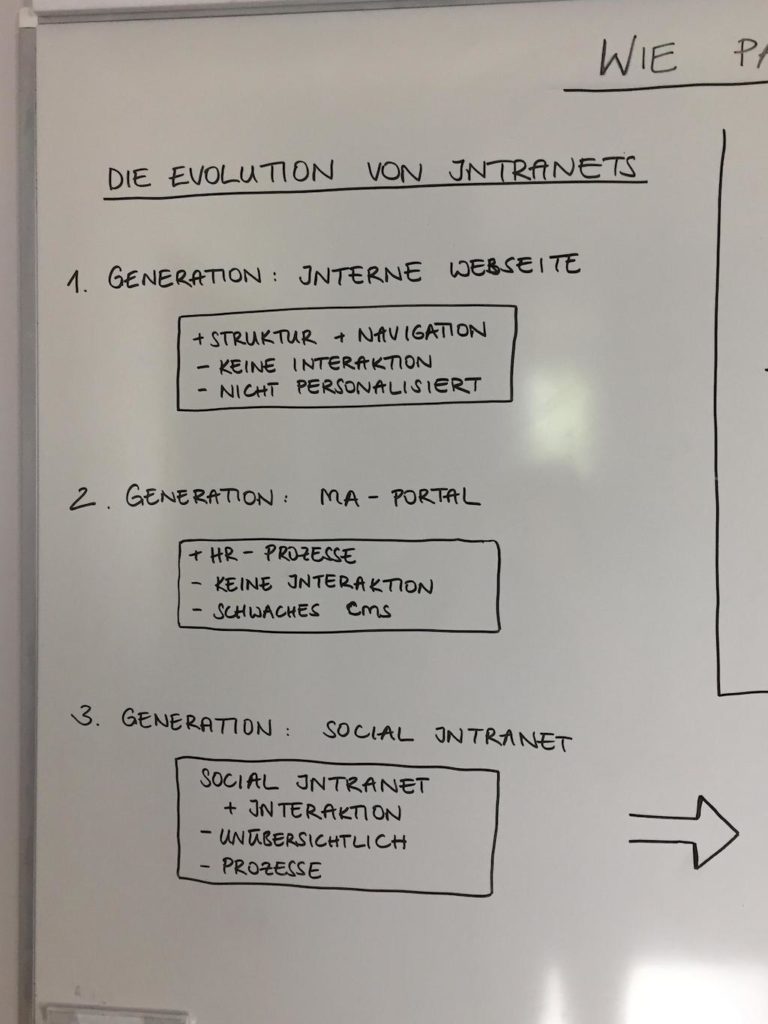 WIE PA
DIE EVOLUTION VON INTRANETS
1. GENERATION: INTERNE WEBSEITE
+ STRUKTUR + NAVIGATION
- KEINE INTERAKTION
- NICHT PERSONALISIERT
2. GENERATION: MA-PORTAL
+ HR-PROZESSE
- KEINE INTERAKTION
- SCHWACHES CMS
3. GENERATION: SOCIAL INTRANET
SOCIAL INTRANET
+ INTERAKTION
- UNÜBERSICHTLICH
- PROZESSE